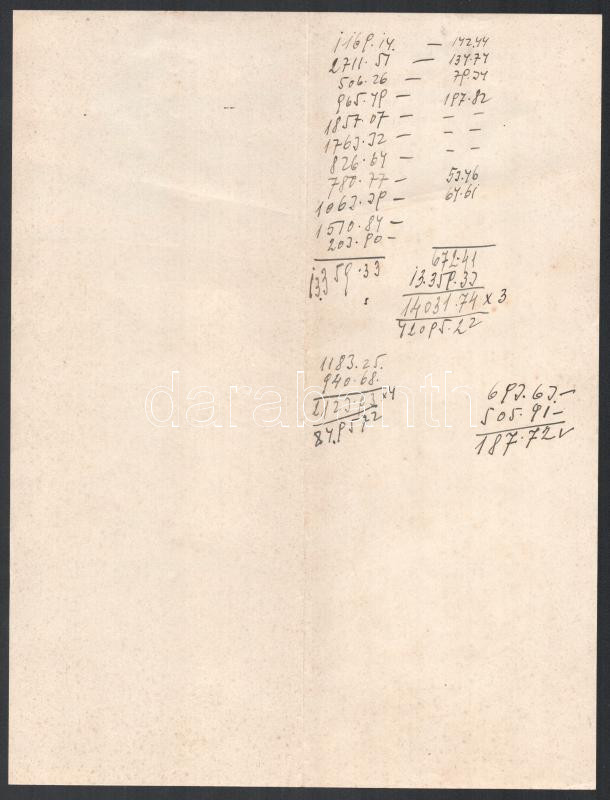 1169.14. — 142.44
2711.51 — 134.74
506.26 — 79.34
965.49 — 197.82
1857.07 — – –
1763.32 — – –
826.64 — – –
780.77 — 53.46
1063.39 — 64.61
1570.84 —
203.90 —
13359.33 672.41
13.359.33
14031.74 x 3
42095.22
1183.25.
940.68.
2123.93 x4
8495.72
693.63.—
505.91—
187.72
darabanth